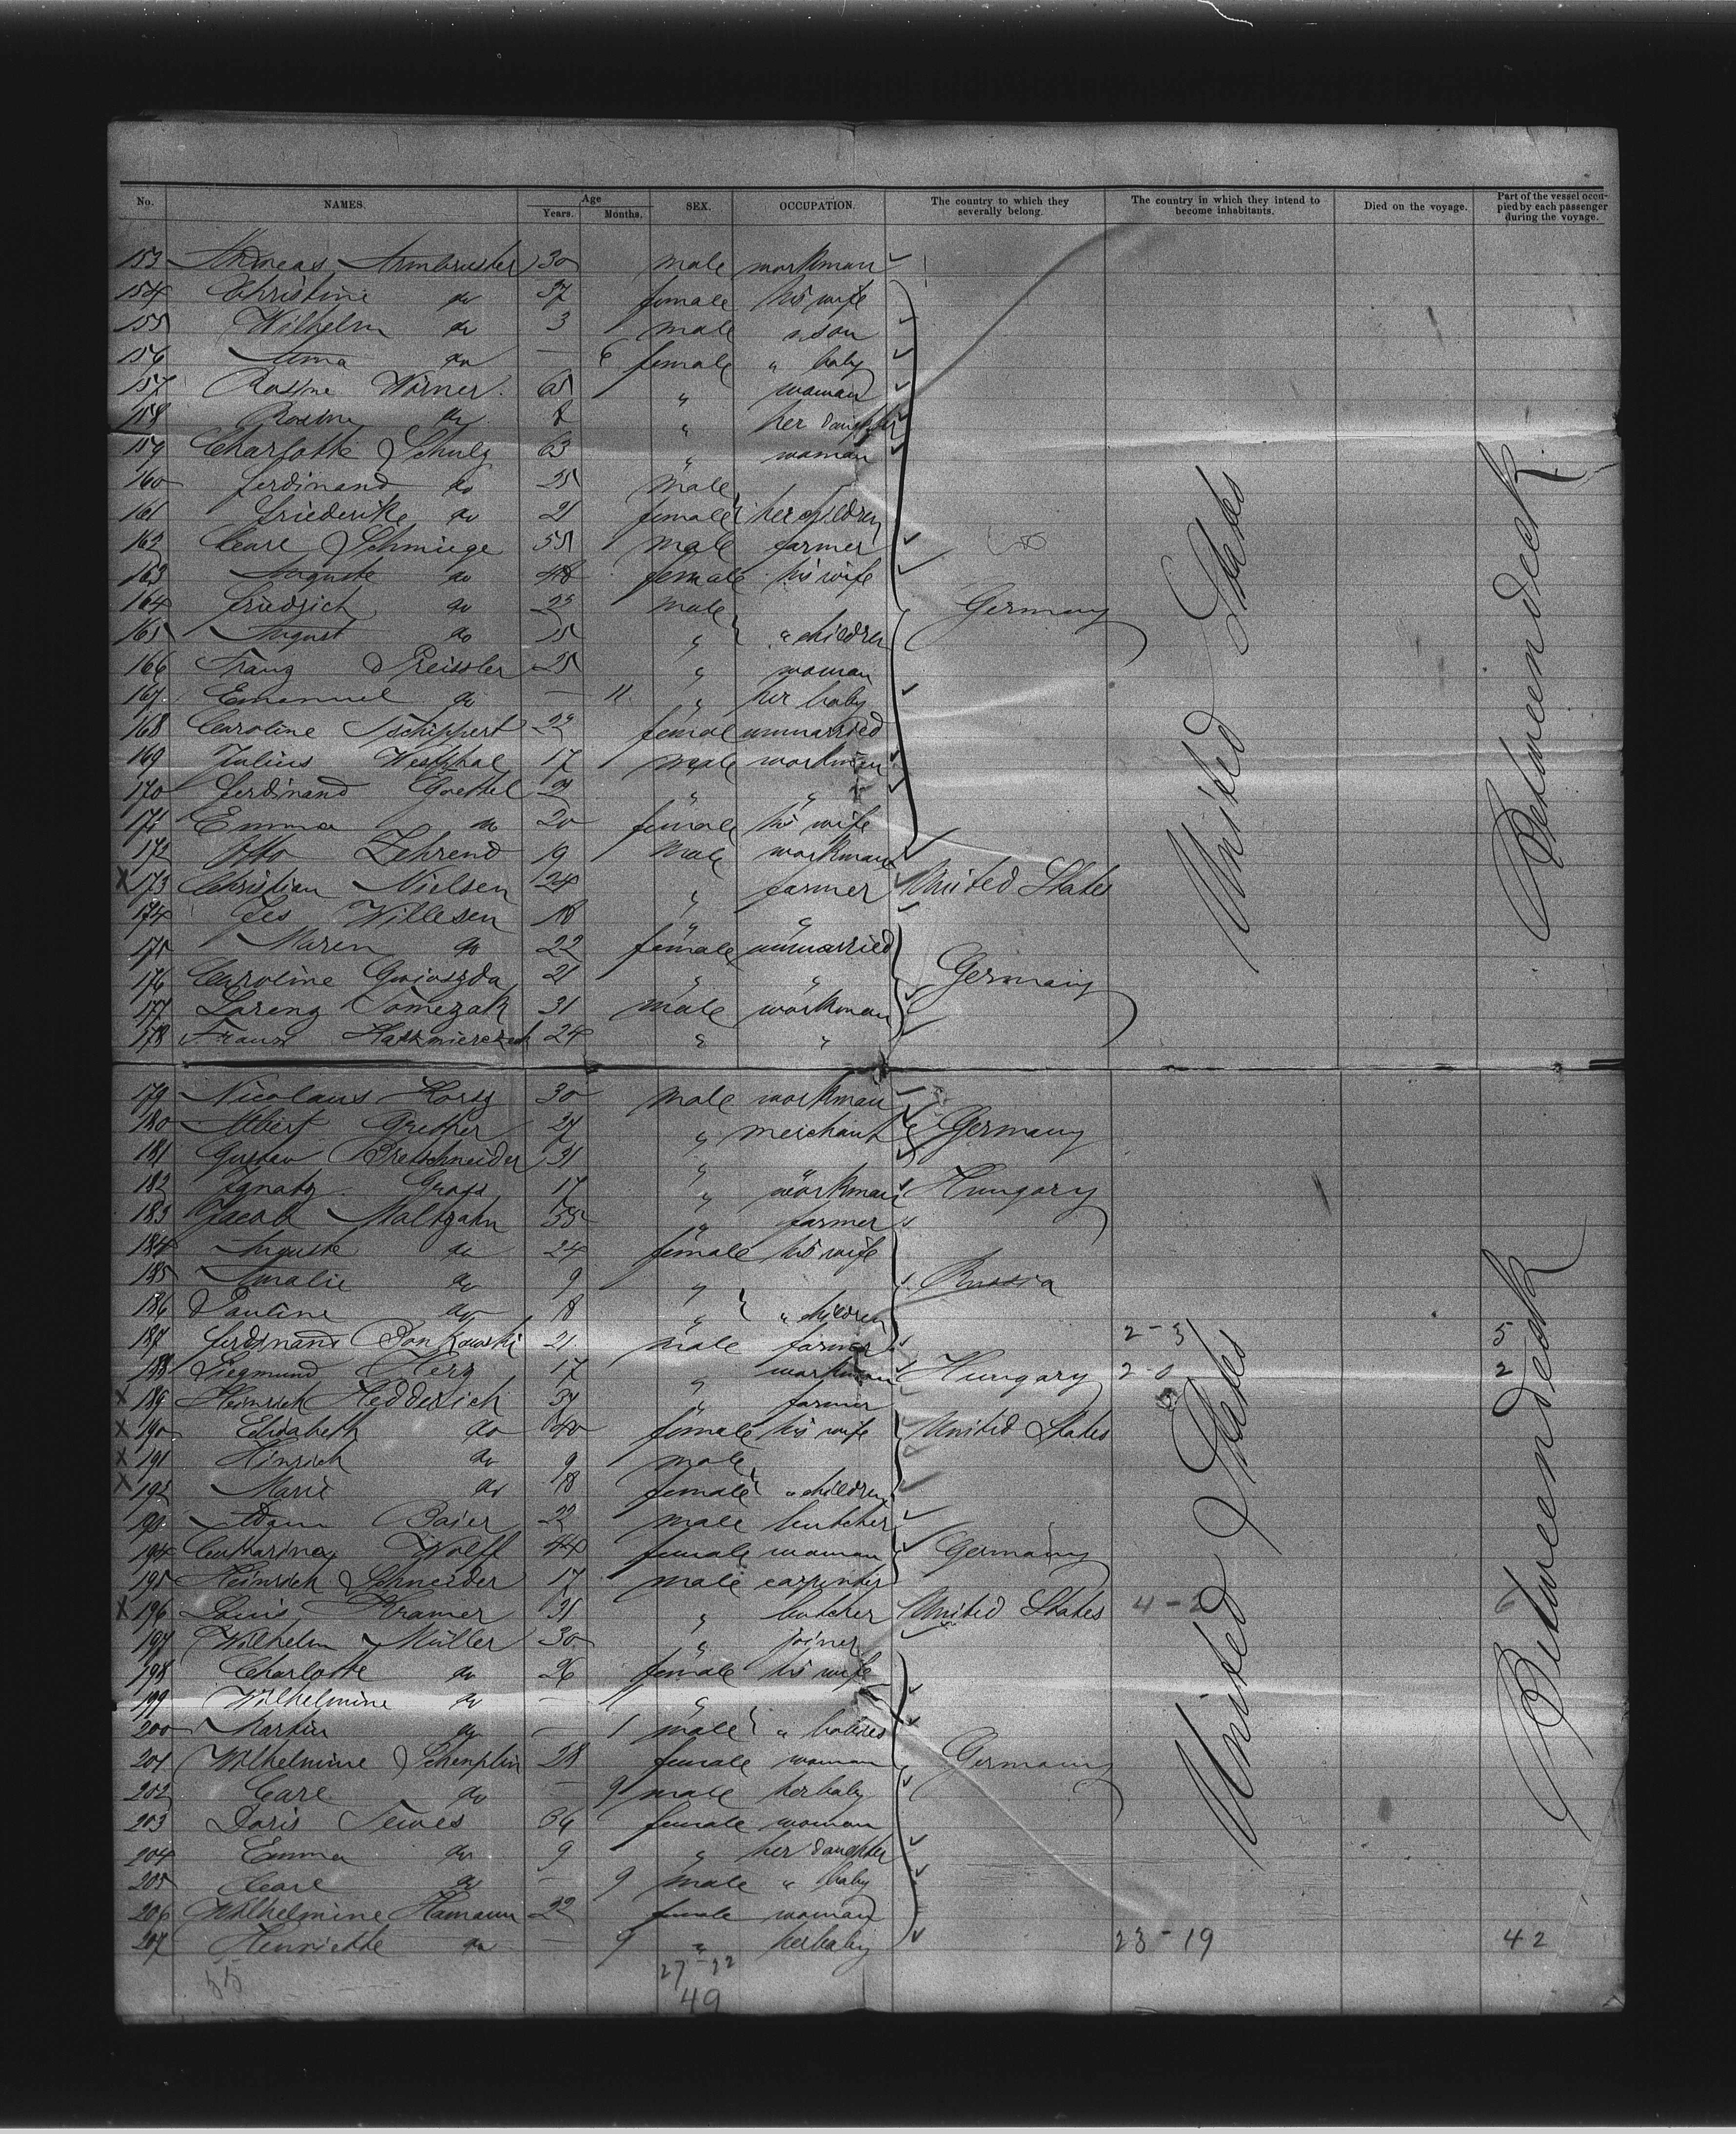 No. NAMES. Age Years. Months. SEX. OCCUPATION. The country to which they severally belong. The country in which they intend to become inhabitants. Died on the voyage. Part of the vessel occupied by each passenger during the voyage.
153 Andreas Armbruster 30 male workman
154 Christine do 37 female his wife
155 Wilhelm do 3 male " son
156 Anna do — 6 female " baby
157 Rosine Wörner 65 " woman
158 Rosine do " her daughter
159 Charlotte Schulz 63 " woman
160 Ferdinand do 25 male
161 Friederike do 21 female her children
162 Carl Schmiege 55 male farmer
163 Auguste do 48 female his wife
164 Friedrich do 23 male Germany United States
165 August do 15 " " children
166 Franz Preissler 25 " woman
167 Emanuel do — 11 " her baby
168 Caroline Tschippert 22 female unmarried
169 Julius Westphal 17 male workman
170 Ferdinand Goettel " "
171 Emma do 20 female his wife
172 Otto Zehrend 19 male workman Between deck
X 173 Christian Nielsen 24 " farmer United States
174 Jes Willesen 18 " "
175 Maren do 22 female unmarried
176 Caroline 21 " " Germany
177 Lorenz Tomczak 31 male workman
178 Franz 24 " "
179 Nicolaus 30 male workman
180 Albert Grether 27 " merchant Germany
181 Gustav Bretschneider 31 "
182 Ignatz 17 " workman Hungary
183 Jacob Maltzahn 55 " farmer
184 Auguste do 24 female his wife
185 Amalie do 9 " Russia
186 Pauline do 8 " " children
187 Ferdinand 21 male farmer 2-3 5
188 Siegmund Herz 17 " workman Hungary 2-0 2
X 189 Heinrich Hedderich 37 " farmer
X 190 Elisabeth do 40 female his wife United States
X 191 Hinrich do 9 male
X 192 Marie do 8 female " children United States
193 Adam Baier 22 male butcher
194 Catharina Wolff 44 female woman Germany
195 Heinrich Schneider 17 male carpenter
X 196 Louis Kramer 31 " butcher United States 4-2 6
197 Wilhelm Müller 30 " joiner Between deck
198 Charlotte do 26 female his wife
199 Wilhelmine do — 11 "
200 Martin do — 1 male " babies
201 Wilhelmine 28 female woman Germany
202 Carl do — 9 male her baby
203 Doris Tewes 34 female woman
204 Emma do 9 " her daughter
205 Carl do — 9 male " baby
206 Wilhelmine Hamann 22 female woman
207 Henriette do — 9 " her baby 23-19 42
55 27-22
49